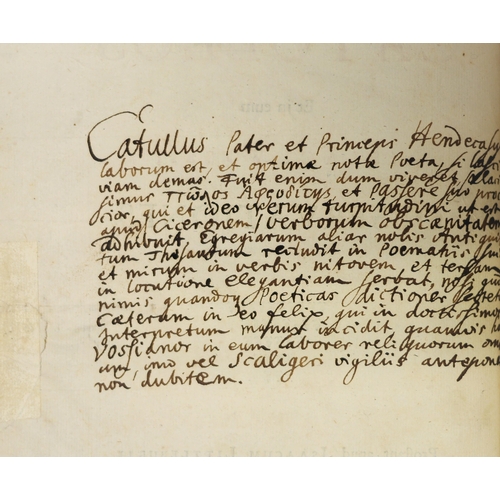 Catullus Pater et Princeps Hendecasy
laborum est, et optimæ notæ Poeta, si lasci
viam demas. Fuit enim dum viveret, sala
simus et Passere suo pro
cior, qui et ideo verum turpitudini ut est
apud Ciceronem/verborum obscænitatem
adhibuit. Egregiarum aliar nobis Antiqui
tum Thesaurum recludit in Poematis sui
et mirum in verbis nitorem, et tersam
in locutione elegantiam servat, nisi qu
nimis quandoq Poeticas dictiones
Cæterum in eo felix, qui in doctissimor
Interpretum manus incidit, quamvis
Vossianos in eum labores reliquorum om
um, imo vel Scaligeri vigiliis antepone
non dubitem.